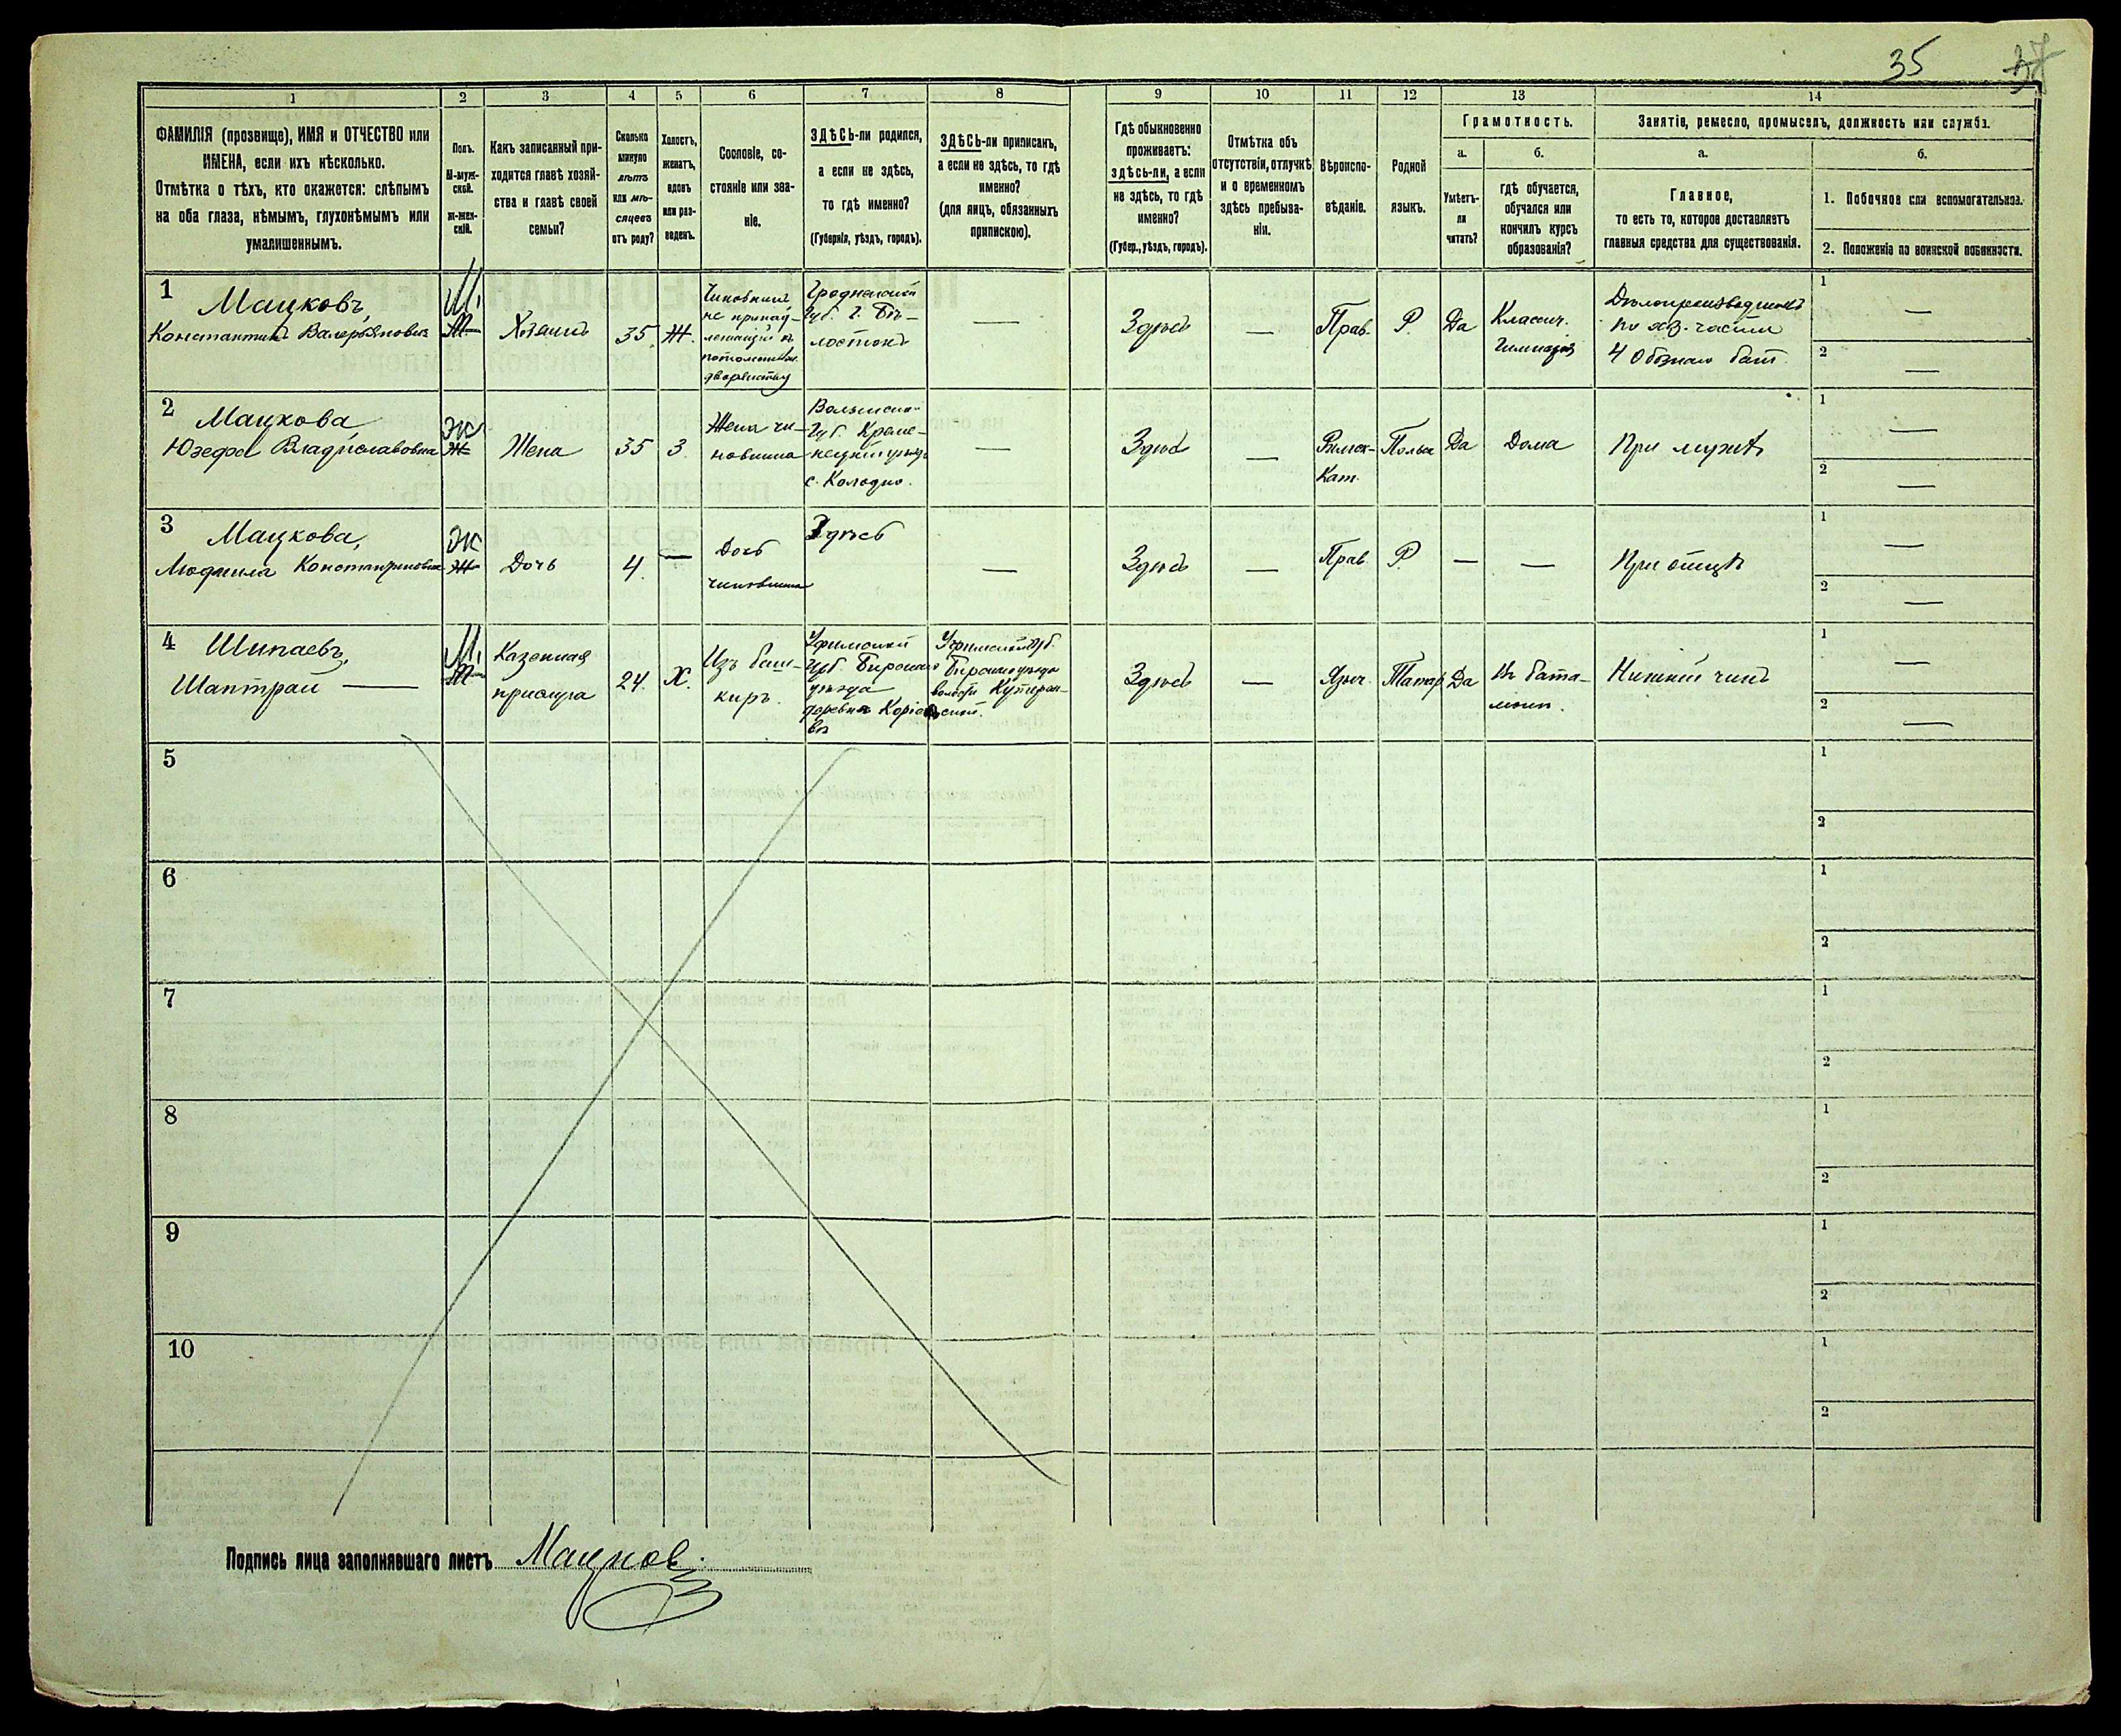 35
37
1 2 3 4 5 6 7 8 9 10 11 12 13 14
ФАМИЛІЯ (прозвище), ИМЯ и ОТЧЕСТВО или
ИМЕНА, если ихъ нѣсколько.
Отмѣтка о тѣхъ, кто окажется: слѣпымъ
на оба глаза, нѣмымъ, глухонѣмымъ или
умалишеннымъ.
Полъ.
М-муж-
ской.
ж-жен-
скій.
Какъ записанный при-
ходится главѣ хозяй-
ства и главѣ своей
семьи?
Сколько
минуло
лѣтъ
или мѣ-
сяцевъ
отъ роду?
Холостъ,
женатъ,
вдовъ
или раз-
веденъ.
Сословіе, со-
стояніе или зва-
ніе.
ЗДѢСЬ-ли родился,
а если не здѣсь,
то гдѣ именно?
(Губернія, уѣздъ, городъ).
ЗДѢСЬ-ли приписанъ,
а если не здѣсь, то гдѣ
именно?
(для лицъ, обязанныхъ
припискою).
Гдѣ обыкновенно
проживаетъ:
здѣсь-ли, а если
не здѣсь, то гдѣ
именно?
(Губер., уѣздъ, городъ).
Отмѣтка объ
отсутствіи, отлучкѣ
и о временномъ
здѣсь пребыва-
ніи.
Вѣроиспо-
вѣданіе.
Родной
языкъ.
Грамотность.
а.
Умѣетъ-
ли
читать?
б.
гдѣ обучается,
обучался или
кончилъ курсъ
образованія?
Занятіе, ремесло, промыселъ, должность или служба.
а.
Главное,
то есть то, которое доставляетъ
главныя средства для существованія.
б.
1. Побочное или вспомогательное.
2. Положеніе по воинской повинности.
1
Мацковъ,
Константинъ Валерьяновичъ
М.
Хозяинъ
35
Ж.
Чиновникъ,
не принад-
лежащій къ
потомствен.
дворянству
Гродненской
Губ. г. Бѣ-
лостокъ
—
Здѣсь
—
Прав.
Р.
Да
Классич.
Гимназія
Дѣлопроизводитель
по хоз. части
1
—
2
—
2
Мацкова
Юзефа Владиславовна
Ж
Жена
35
З
Жена чи-
новника
Волынск.
Губ. Креме-
нецкій уѣзд
с. Колодно.
—
Здѣсь
—
Римск-
Кат.
Польс
Да
Дома
При мужѣ
1
—
2
—
3
Мацкова,
Людмила Константиновна
Ж
Дочь
4.
—
Дочь
чиновника
Здѣсь
—
Здѣсь
—
Прав.
Р.
—
—
При отцѣ
1
—
2
—
4
Шипаевъ,
Шаптрай —
М.
Казенная
прислуга
24.
Х.
Изъ баш-
киръ.
Уфимской
Губ. Бирскаго
уѣзда
деревня
Уфимской Губ.
Бирскаго уѣзда
волости
Здѣсь
—
Языч.
Татар
Да
Въ бата-
льон.
Нижній чинъ
1
—
2
—
5
1
2
6
1
2
7
1
2
8
1
2
9
1
2
10
1
2
Подпись лица заполнявшаго листъ Мацков